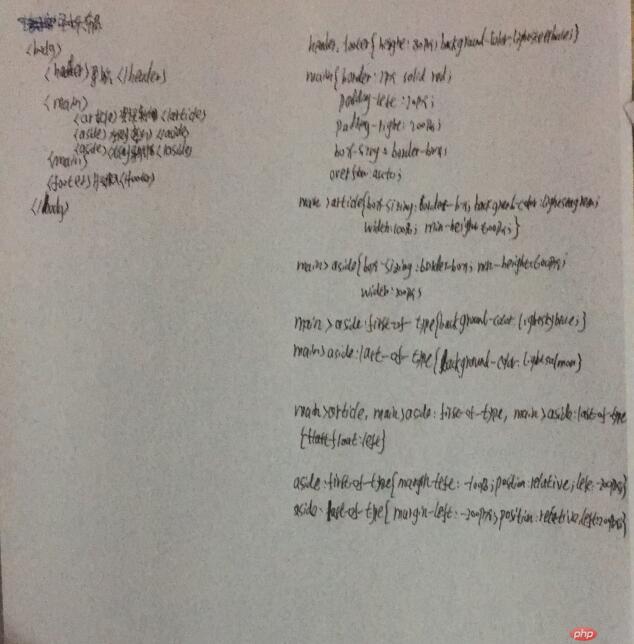 <body>
<header></header>
<main>
<article></article>
<aside></aside>
<aside></aside>
<main>
<footer></footer>
</body>
header, footer{height:30px; background-color:lightsteelblue;}
main{border:2px solid red;
padding-left:200px;
padding-right:200px;
box-sizing:border-box;
overflow:auto;
main>article{box-sizing:border-box; background-color:lightseagreen;
width:100%; min-height:600px;}
main>aside{box-sizing:border-box; min-height:600px;
width:200px;
main>aside:first-of-type{background-color:lightskyblue;}
main>aside:last-of-type{background-color:lightsalmon}
main>article, main>aside:first-of-type, main>aside:last-of-type
{float:left}
aside:first-of-type{margin-left:-100%;position:relative;left:-200px}
aside:last-of-type{margin-left:-200px;position:relative;left:200px}
php